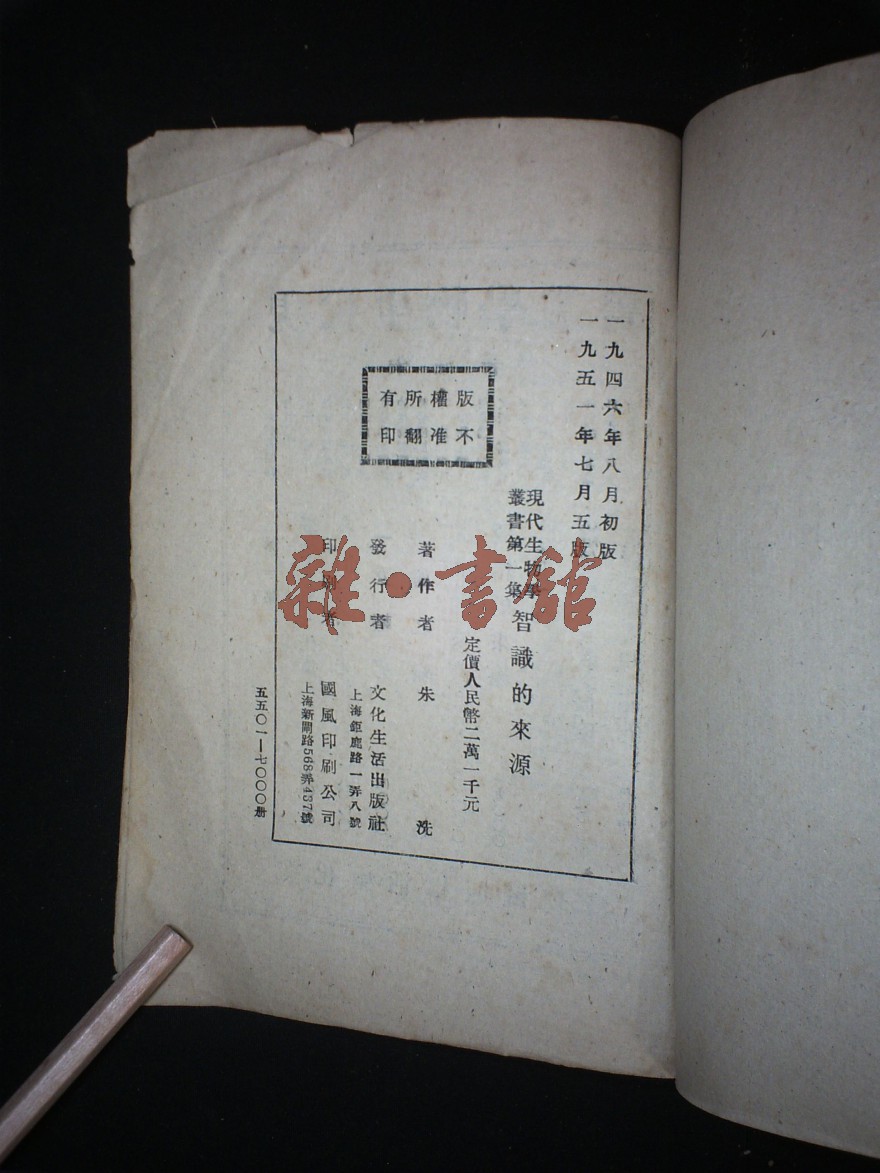 一九四六年八月初版
一九五一年七月五版
現代生物學
叢書第一集
智識的來源
定價人民幣二萬一千元
著作者 朱洗
發行者 文化生活出版社
上海鉅鹿路一弄八號
印刷者 國風印刷公司
上海新閘路568弄437號
版權所有
不准翻印
五五〇一—七〇〇〇册
雜·書舘